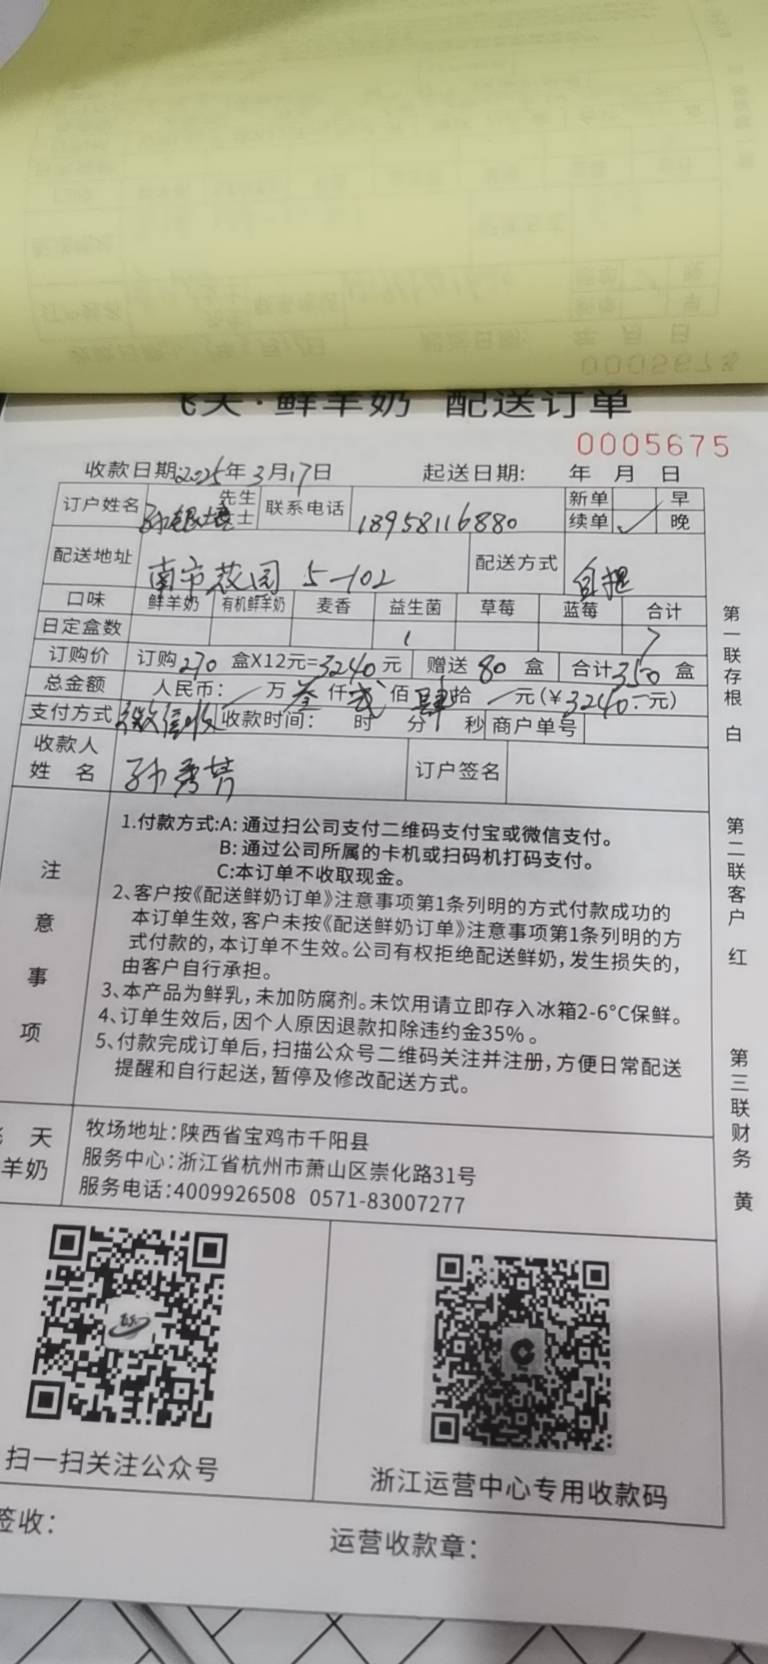 飞天·鲜羊奶 配送订单
0005675
收款日期2025年3月17日 起送日期: 年 月 日
订户姓名 先生 士 联系电话 18958116880 新单 早
续单 ✓ 晚
配送地址 南市花园 5-102 配送方式 自提
口味 鲜羊奶 有机鲜羊奶 麦香 益生菌 草莓 蓝莓 合计
日定盒数 1
订购价 订购270盒X12元=3240元 赠送80盒 合计350盒
总金额 人民币: 万叁仟贰佰肆拾 元(¥3240.-元)
支付方式 收款时间: 时 分 秒 商户单号
收款人姓名 孙秀芳 订户签名
第一联存根 白
第二联客户 红
第三联财务 黄
注意事项
1.付款方式:A:通过扫公司支付二维码支付宝或微信支付。
B:通过公司所属的卡机或扫码机打码支付。
C:本订单不收取现金。
2、客户按《配送鲜奶订单》注意事项第1条列明的方式付款成功的
本订单生效,客户未按《配送鲜奶订单》注意事项第1条列明的方
式付款的,本订单不生效。公司有权拒绝配送鲜奶,发生损失的,
由客户自行承担。
3、本产品为鲜乳,未加防腐剂。未饮用请立即存入冰箱2-6°C保鲜。
4、订单生效后,因个人原因退款扣除违约金35%。
5、付款完成订单后,扫描公众号二维码关注并注册,方便日常配送
提醒和自行起送,暂停及修改配送方式。
天
羊奶
牧场地址:陕西省宝鸡市千阳县
服务中心:浙江省杭州市萧山区崇化路31号
服务电话:4009926508 0571-83007277
扫一扫关注公众号
浙江运营中心专用收款码
签收:
运营收款章: